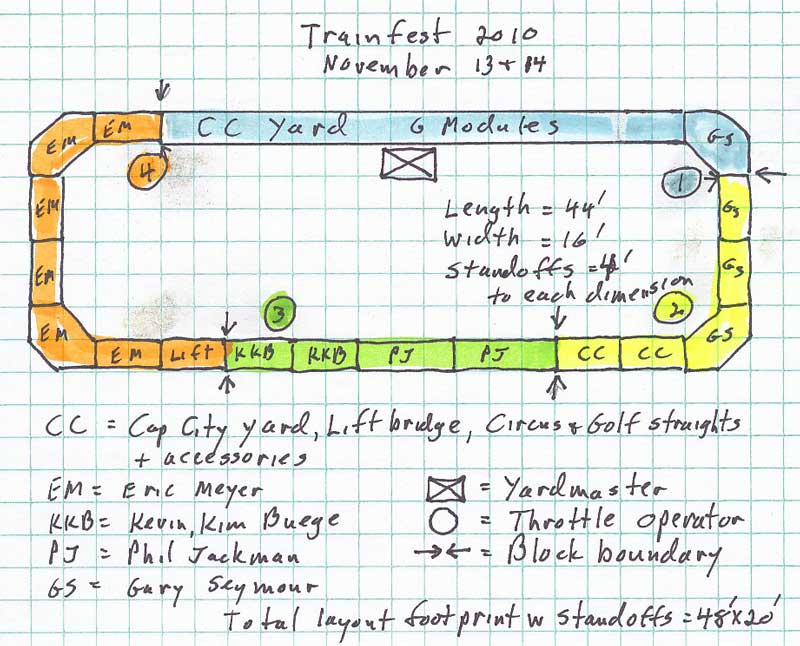 Trainfest 2010
November 13 + 14
EM
EM
CC Yard 6 Modules
GS
4
1
EM
GS
Length = 44'
Width = 16'
Standoffs = 4'
to each dimension
EM
GS
3
2
EM
EM
Lift
KKB
KKB
PJ
PJ
CC
CC
GS
CC = Cap City yard, Lift bridge, Circus + Golf straights
+ accessories
EM = Eric Meyer
KKB = Kevin, Kim Buege
PJ = Phil Jackman
GS = Gary Seymour
= Yardmaster
= Throttle operator
= Block boundary
Total layout footprint w standoffs = 48'x20'